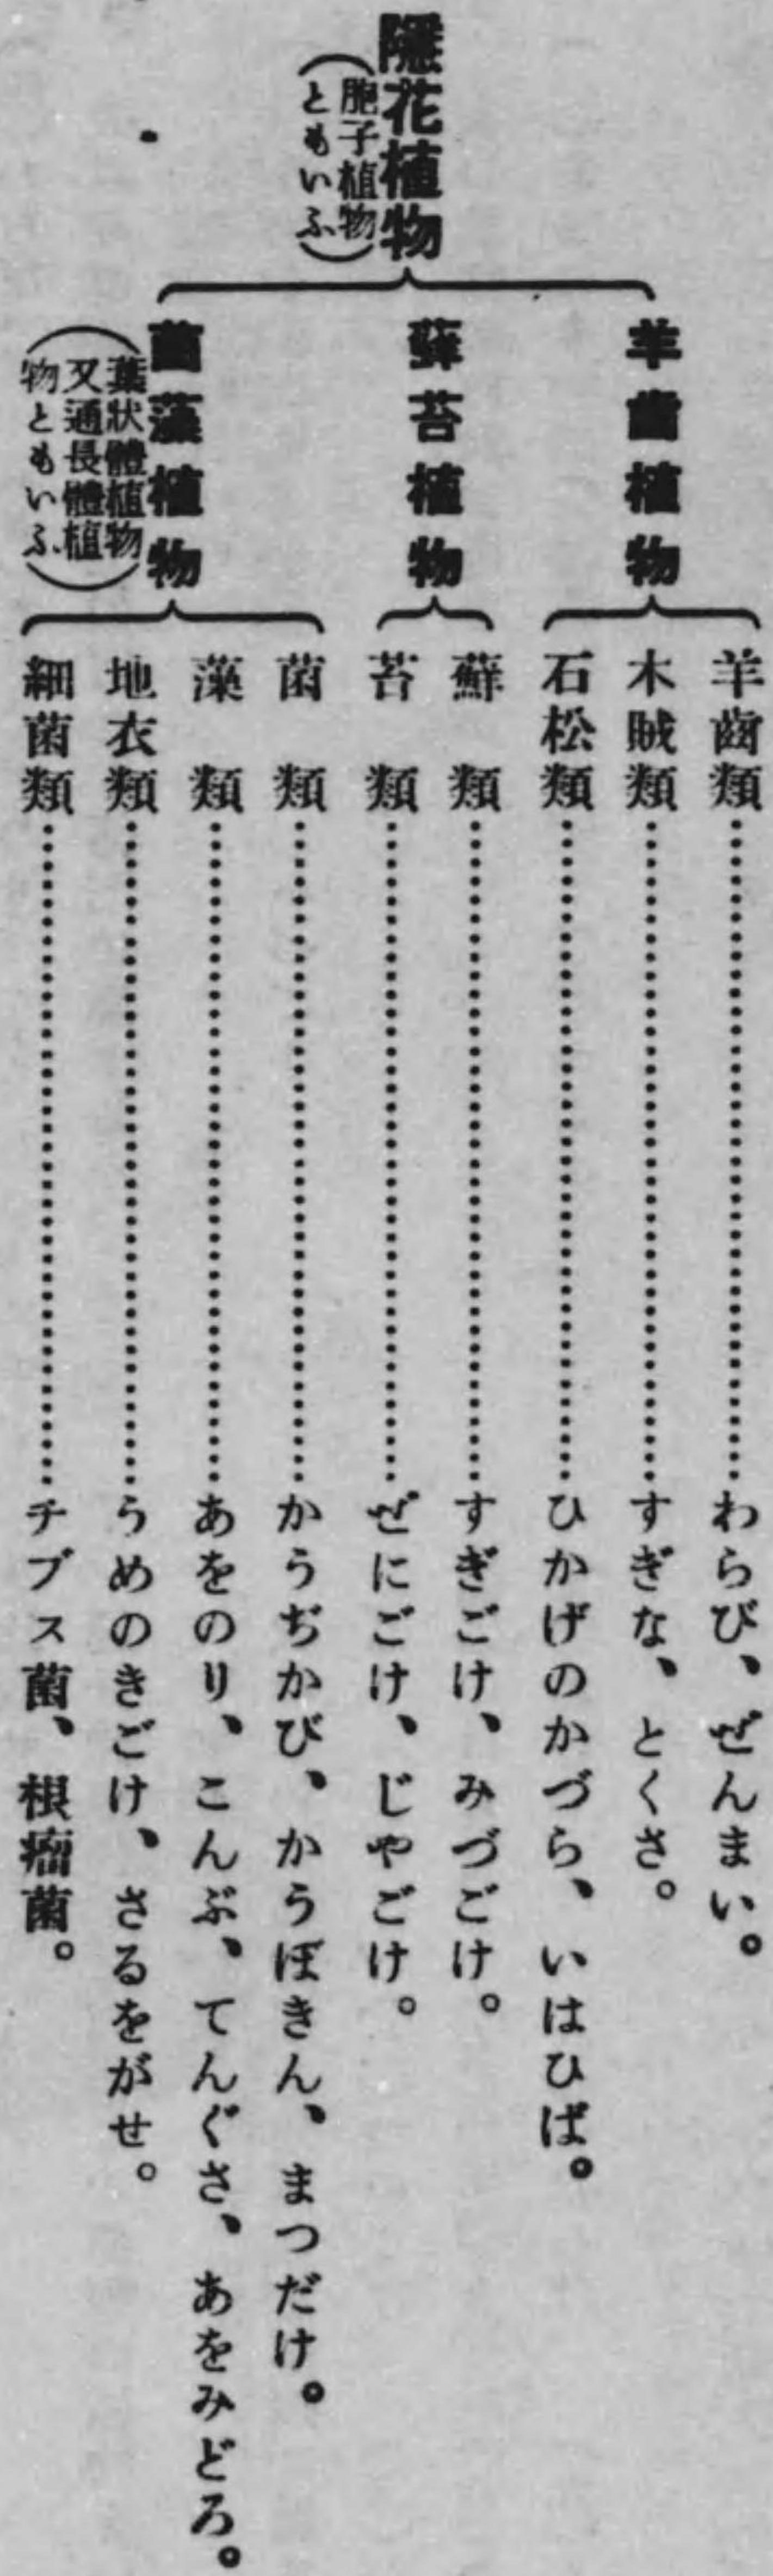 隱花植物
（胞子植物
ともいふ）
羊齒植物
羊齒類……わらび、ぜんまい。
木賊類……すぎな、とくさ。
石松類……ひかげのかづら、いはひば。
蘚苔植物
蘚類……すぎごけ、みづごけ。
苔類……ぜにごけ、じやごけ。
菌藻植物
（葉狀體植物
又通長體植
物ともいふ）
菌類……かうぢかび、かうぼきん、まつだけ。
藻類……あをのり、こんぶ、てんぐさ、あをみどろ。
地衣類……うめのきごけ、さるをがせ。
細菌類……チブス菌、根瘤菌。